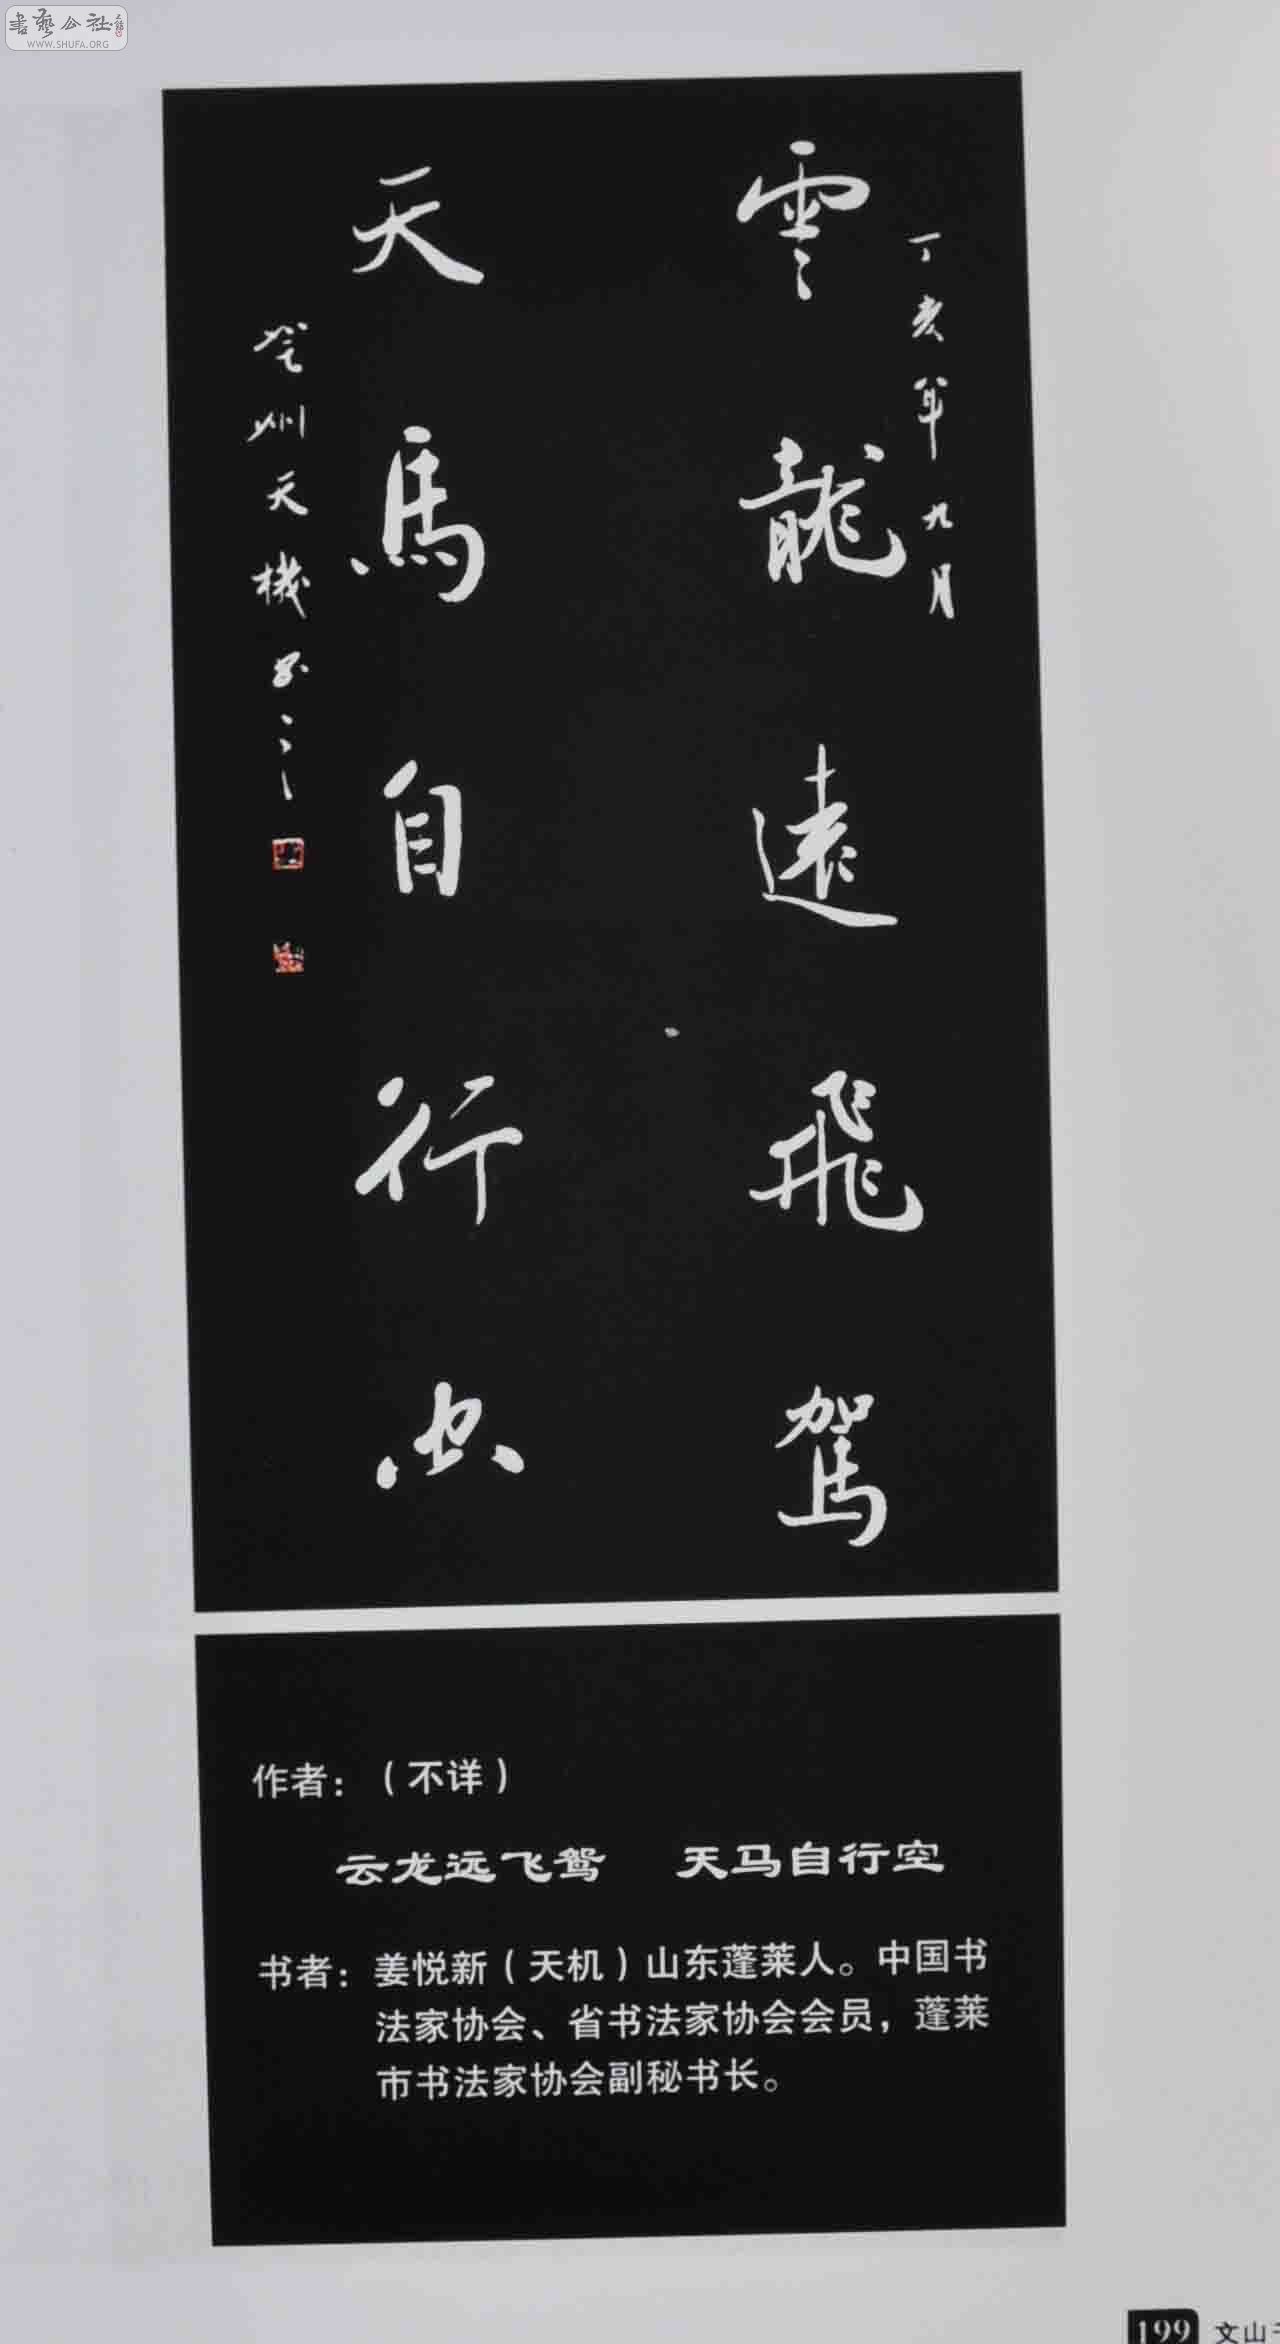 書藝公社
WWW.SHUFA.ORG
丁亥年九月
雲龍遠飛駕
天馬自行空
登州天機書
作者：（不详）
云龙远飞驾 天马自行空
书者：姜悦新（天机）山东蓬莱人。中国书
法家协会、省书法家协会会员，蓬莱
市书法家协会副秘书长。
199 文山